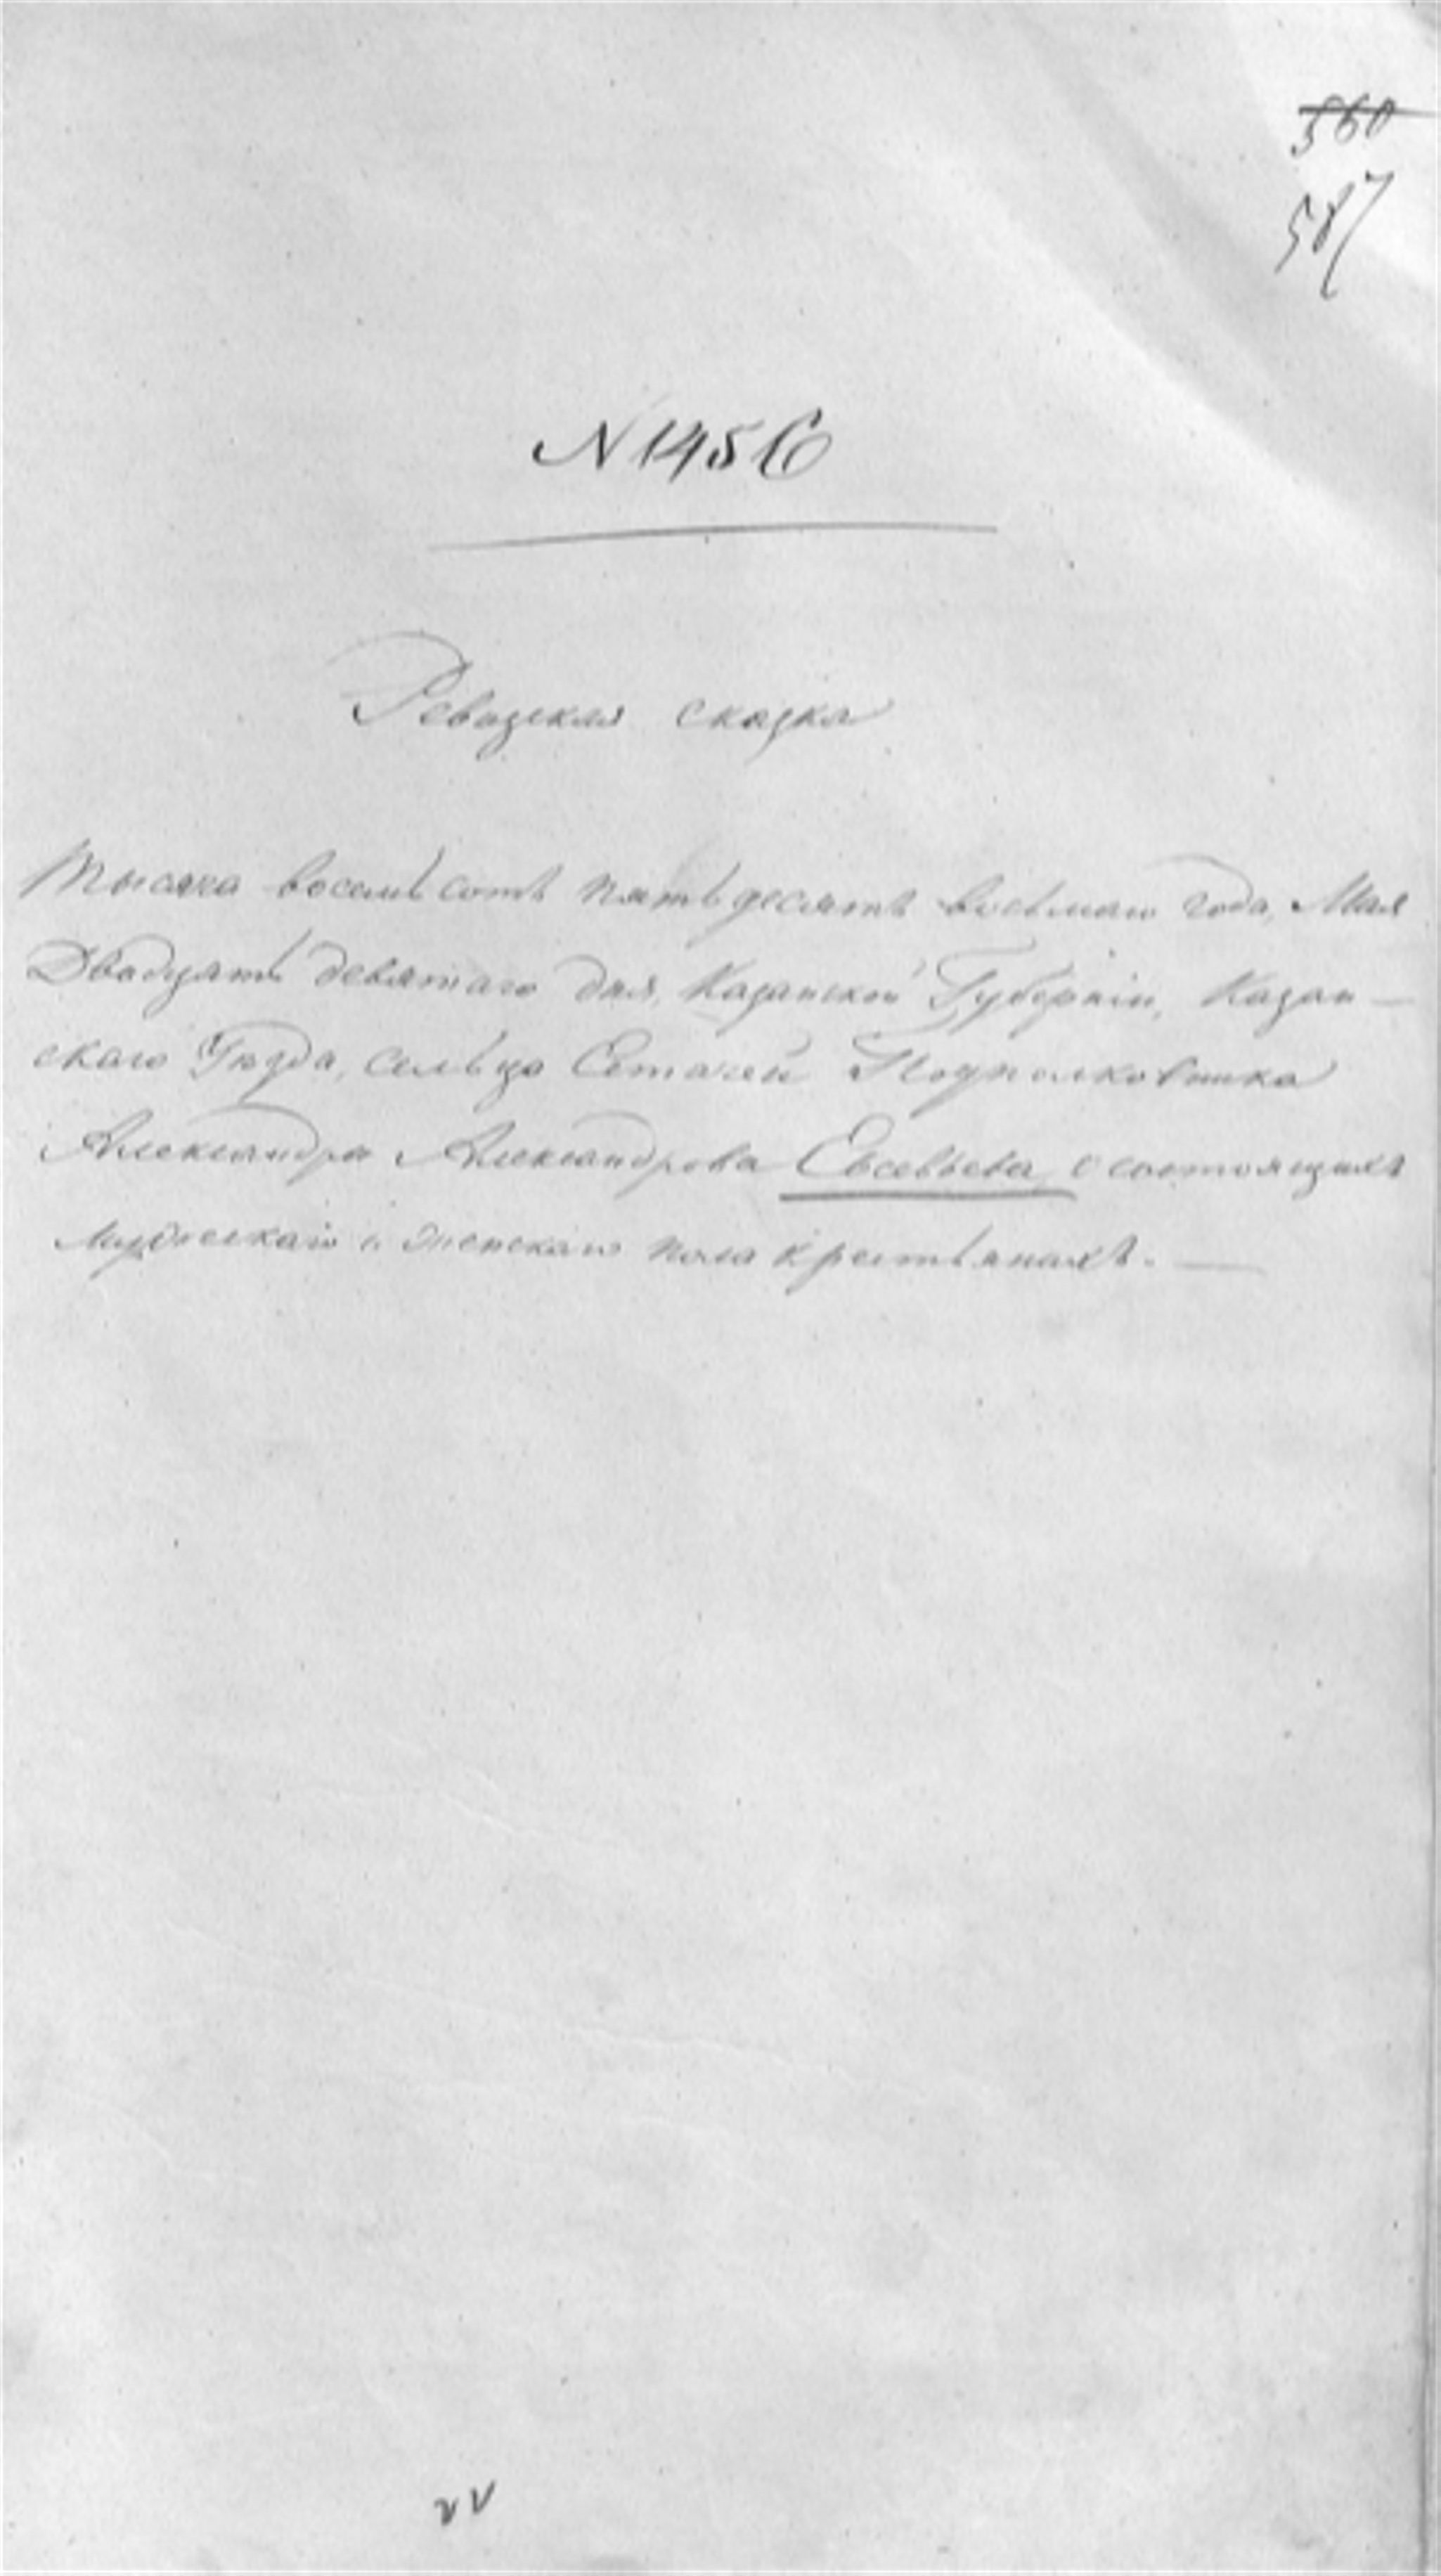 560
587
N 1456
Ревизская сказка
Тысяча восемь сотъ пятьдесятъ восьмаго года, Мая
Двадцать девятаго дня, Казанской Губерніи, Казан-
скаго Уѣзда, сельца Сетачей Подполковника
Александра Александрова Евсевьева о состоящихъ
мужескаго и женскаго пола крестьянахъ.